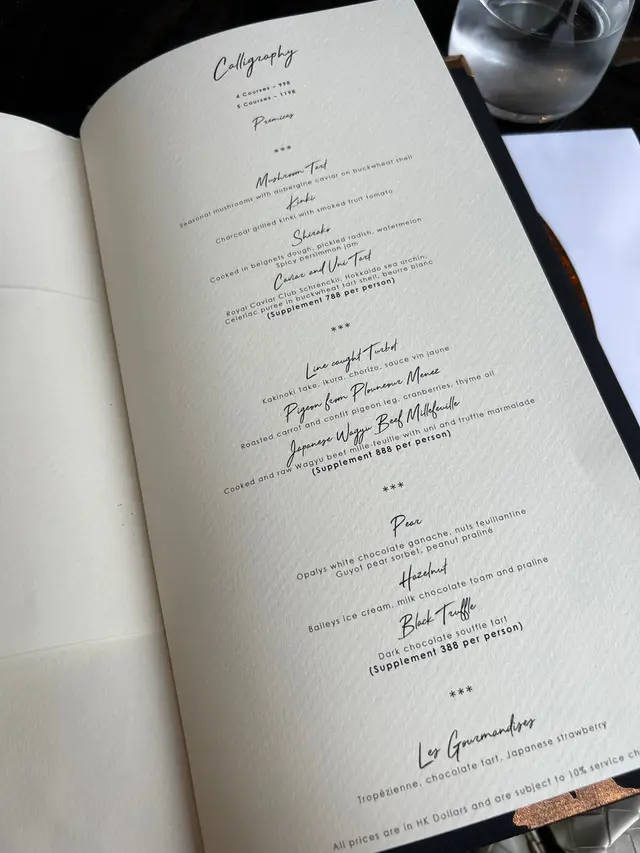 Calligraphy
4 Courses – 998
5 Courses – 1198
Premices
***
Mushroom Tart
Seasonal mushrooms with aubergine caviar on buckwheat shell
Kinki
Charcoal grilled kinki with smoked fruit tomato
Shirako
Cooked in beignets dough, pickled radish, watermelon
Spicy persimmon jam
Caviar and Uni Tart
Royal Caviar Club Schrenckii, Hokkaido sea urchin,
Celeriac puree in buckwheat tart shell, beurre blanc
(Supplement 788 per person)
***
Line caught Turbot
Kakinoki take, ikura, chorizo, sauce vin jaune
Pigeon from Plouneour Menez
Roasted carrot and confit pigeon leg, cranberries, thyme oil
Japanese Wagyu Beef Millefeuille
Cooked and raw Wagyu beef mille-feuille with uni and truffle marmalade
(Supplement 888 per person)
***
Pear
Opalys white chocolate ganache, nuts feuillantine
Guyot pear sorbet, peanut praliné
Hazelnut
Baileys ice cream, milk chocolate foam and praline
Black Truffle
Dark chocolate souffle tart
(Supplement 388 per person)
***
Les Gourmandises
Tropézienne, chocolate tart, Japanese strawberry
All prices are in HK Dollars and are subject to 10% service ch